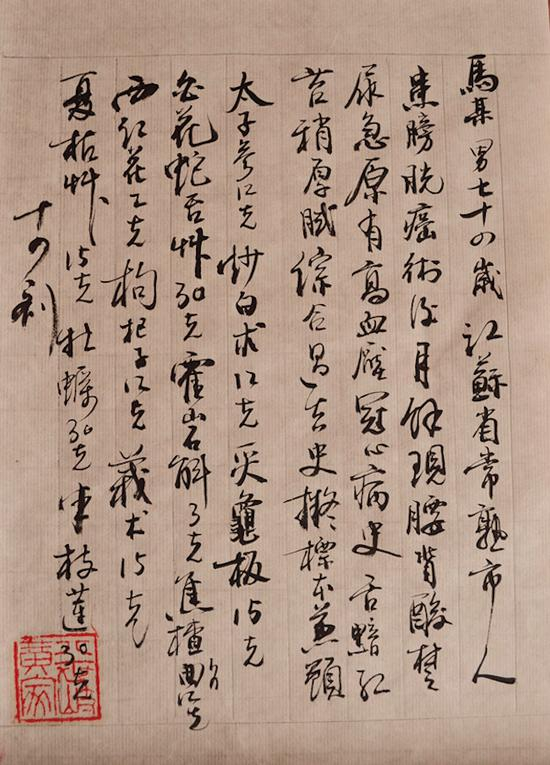 馬某男七十四歲江蘇省常熟市人
患膀胱癌術后月餘現腰背酸楚
尿急原有高血壓冠心病史舌黯紅
苔稍厚膩綜合過去史擬標本兼顧
太子參12克炒白术12克炙龜板15克
白花蛇舌艸30克霍山石斛3克焦楂曲各12克
西红花1克枸杞子12克莪术15克
夏枯艸15克牡蠣30克半枝蓮30克
十四劑